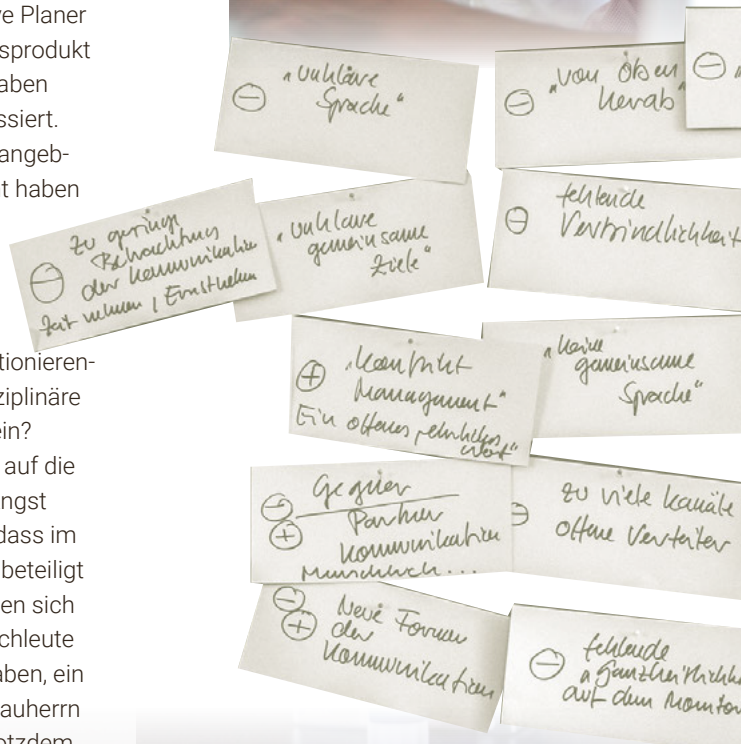 ve Planer
sprodukt
aben
ssiert.
angeb-
t haben
tionieren-
ziplinäre
ein?
auf die
ngst
dass im
beteiligt
en sich
chleute
aben, ein
auherrn
otzdem
⊖ „unklare
Sprache“
⊖ „von oben
herab“
⊖
⊖ zu geringe
Betrachtung
der Kommunikation
Zeit nehmen, Ernst nehmen
„unklare
gemeinsame
Ziele“
⊖ fehlende
Verbindlichkeit
⊕ „Konflikt
Management“
Ein offenes, ehrliches
Wort“
„keine
gemeinsame
Sprache“
⊖ Gegner
⊕ Partner
Kommunikation
Menschlich...
zu viele Kanäle
offene Verteiler
⊖ Neue Formen
⊕ der
Kommunikation
⊖ fehlende
„Ganzheitlichk
auf dem Monito